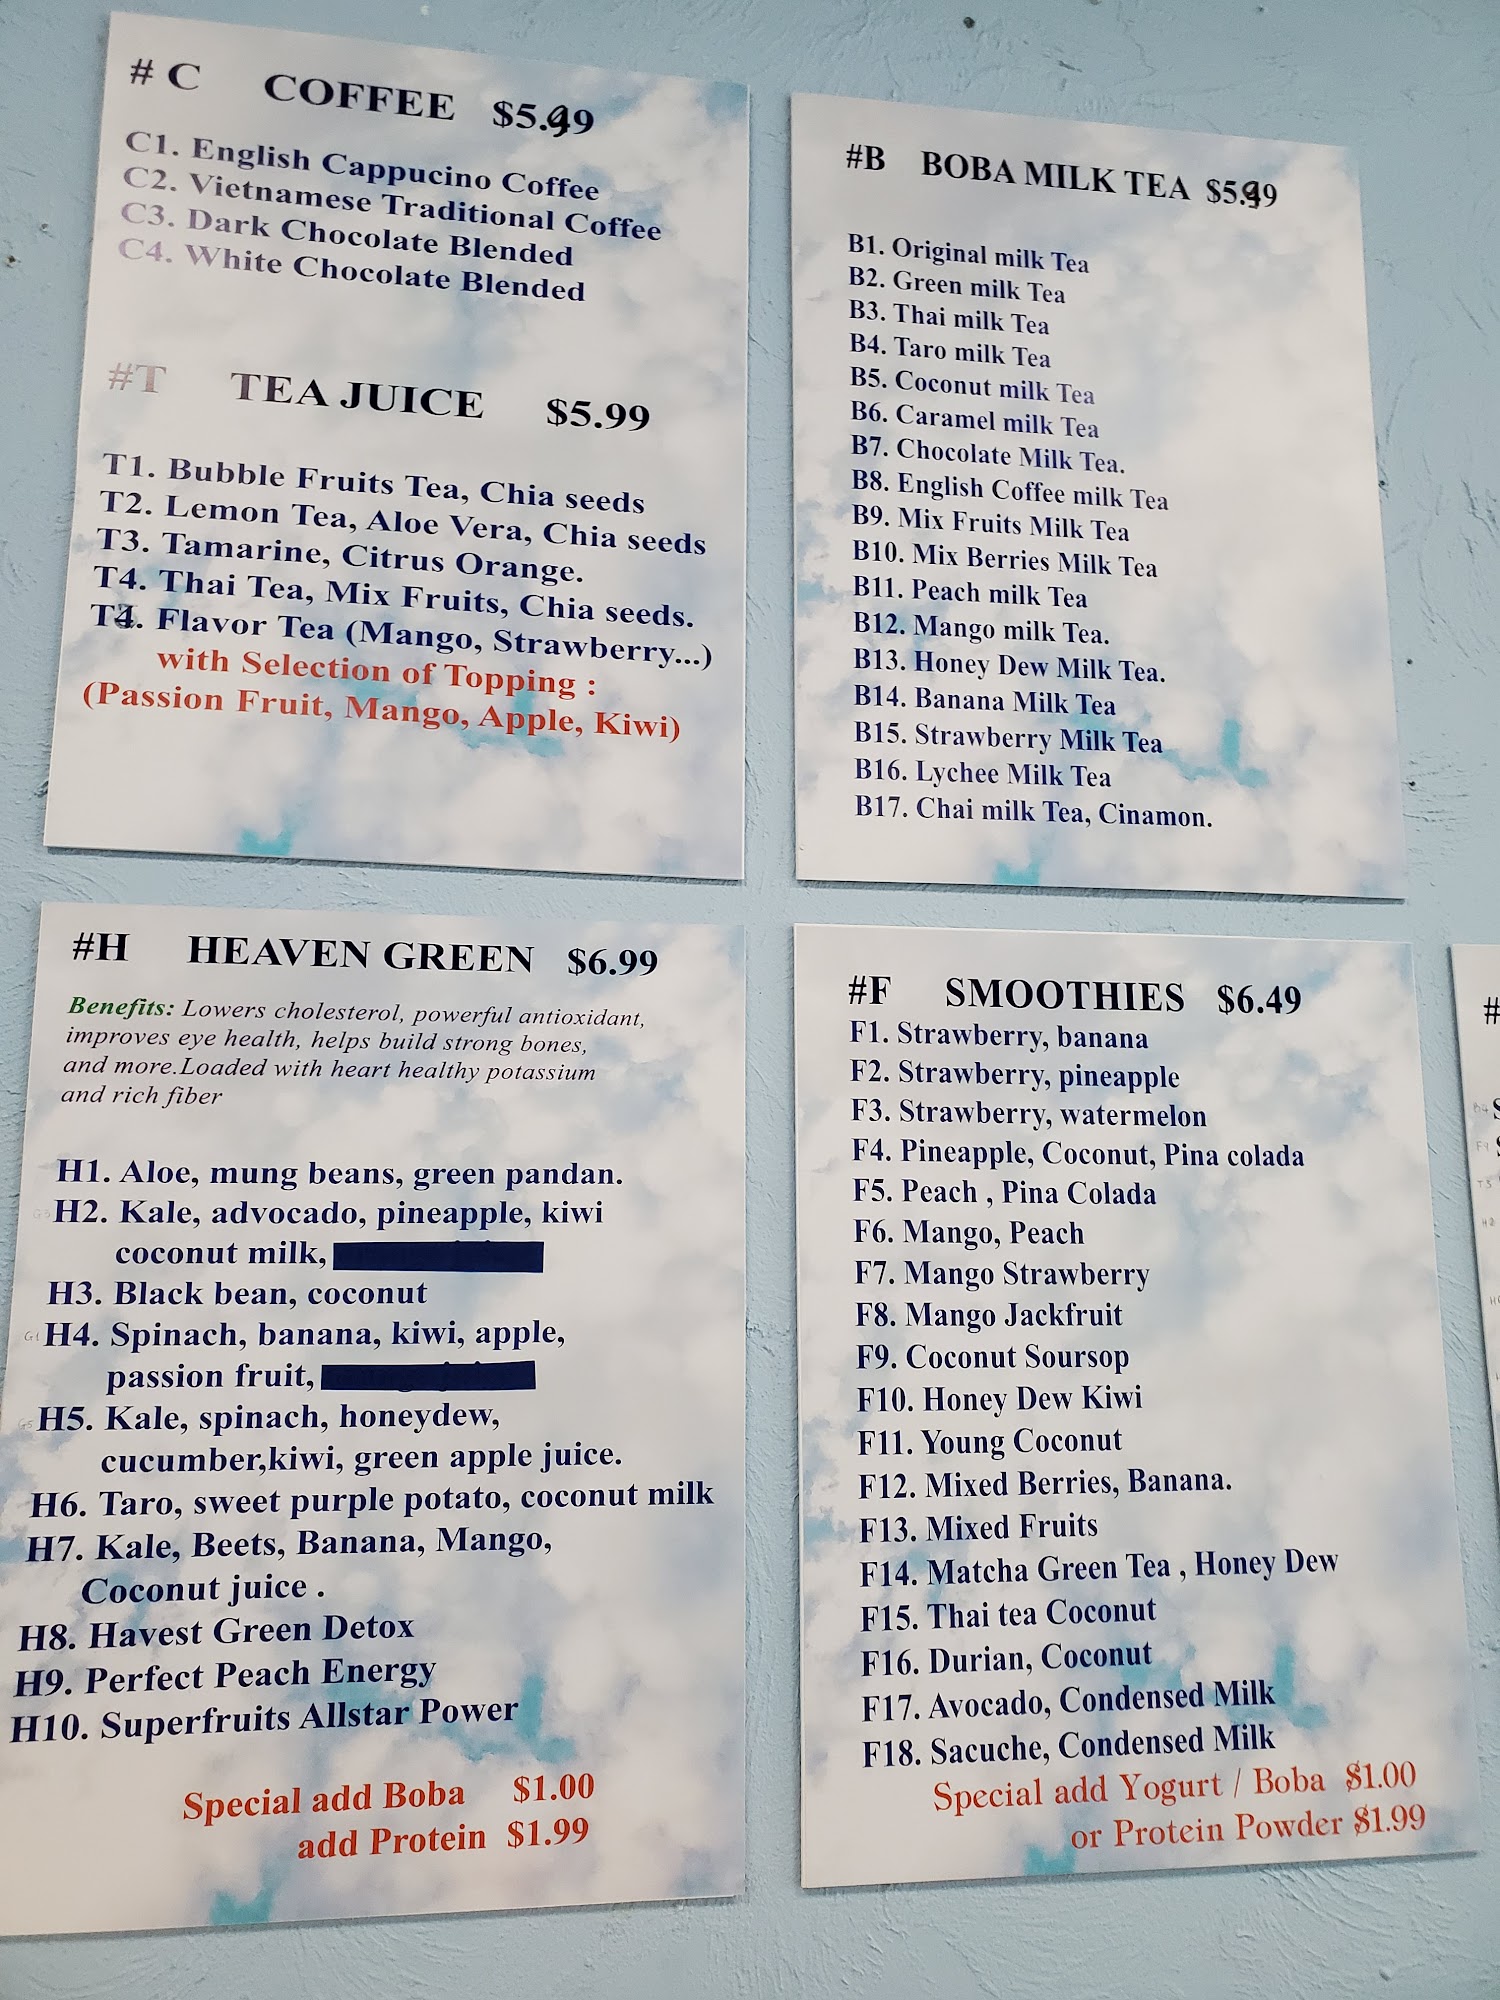 # C COFFEE $5.99
C1. English Cappucino Coffee
C2. Vietnamese Traditional Coffee
C3. Dark Chocolate Blended
C4. White Chocolate Blended
#T TEA JUICE $5.99
T1. Bubble Fruits Tea, Chia seeds
T2. Lemon Tea, Aloe Vera, Chia seeds
T3. Tamarine, Citrus Orange.
T4. Thai Tea, Mix Fruits, Chia seeds.
Flavor Tea (Mango, Strawberry...)
with Selection of Topping :
(Passion Fruit, Mango, Apple, Kiwi)
#B BOBA MILK TEA $5.99
B1. Original milk Tea
B2. Green milk Tea
B3. Thai milk Tea
B4. Taro milk Tea
B5. Coconut milk Tea
B6. Caramel milk Tea
B7. Chocolate Milk Tea.
B8. English Coffee milk Tea
B9. Mix Fruits Milk Tea
B10. Mix Berries Milk Tea
B11. Peach milk Tea
B12. Mango milk Tea.
B13. Honey Dew Milk Tea.
B14. Banana Milk Tea
B15. Strawberry Milk Tea
B16. Lychee Milk Tea
B17. Chai milk Tea, Cinamon.
#H HEAVEN GREEN $6.99
Benefits: Lowers cholesterol, powerful antioxidant,
improves eye health, helps build strong bones,
and more.Loaded with heart healthy potassium
and rich fiber
H1. Aloe, mung beans, green pandan.
H2. Kale, advocado, pineapple, kiwi
coconut milk,
H3. Black bean, coconut
H4. Spinach, banana, kiwi, apple,
passion fruit,
H5. Kale, spinach, honeydew,
cucumber,kiwi, green apple juice.
H6. Taro, sweet purple potato, coconut milk
H7. Kale, Beets, Banana, Mango,
Coconut juice .
H8. Havest Green Detox
H9. Perfect Peach Energy
H10. Superfruits Allstar Power
Special add Boba $1.00
add Protein $1.99
#F SMOOTHIES $6.49
F1. Strawberry, banana
F2. Strawberry, pineapple
F3. Strawberry, watermelon
F4. Pineapple, Coconut, Pina colada
F5. Peach , Pina Colada
F6. Mango, Peach
F7. Mango Strawberry
F8. Mango Jackfruit
F9. Coconut Soursop
F10. Honey Dew Kiwi
F11. Young Coconut
F12. Mixed Berries, Banana.
F13. Mixed Fruits
F14. Matcha Green Tea , Honey Dew
F15. Thai tea Coconut
F16. Durian, Coconut
F17. Avocado, Condensed Milk
F18. Sacuche, Condensed Milk
Special add Yogurt / Boba $1.00
or Protein Powder $1.99
#